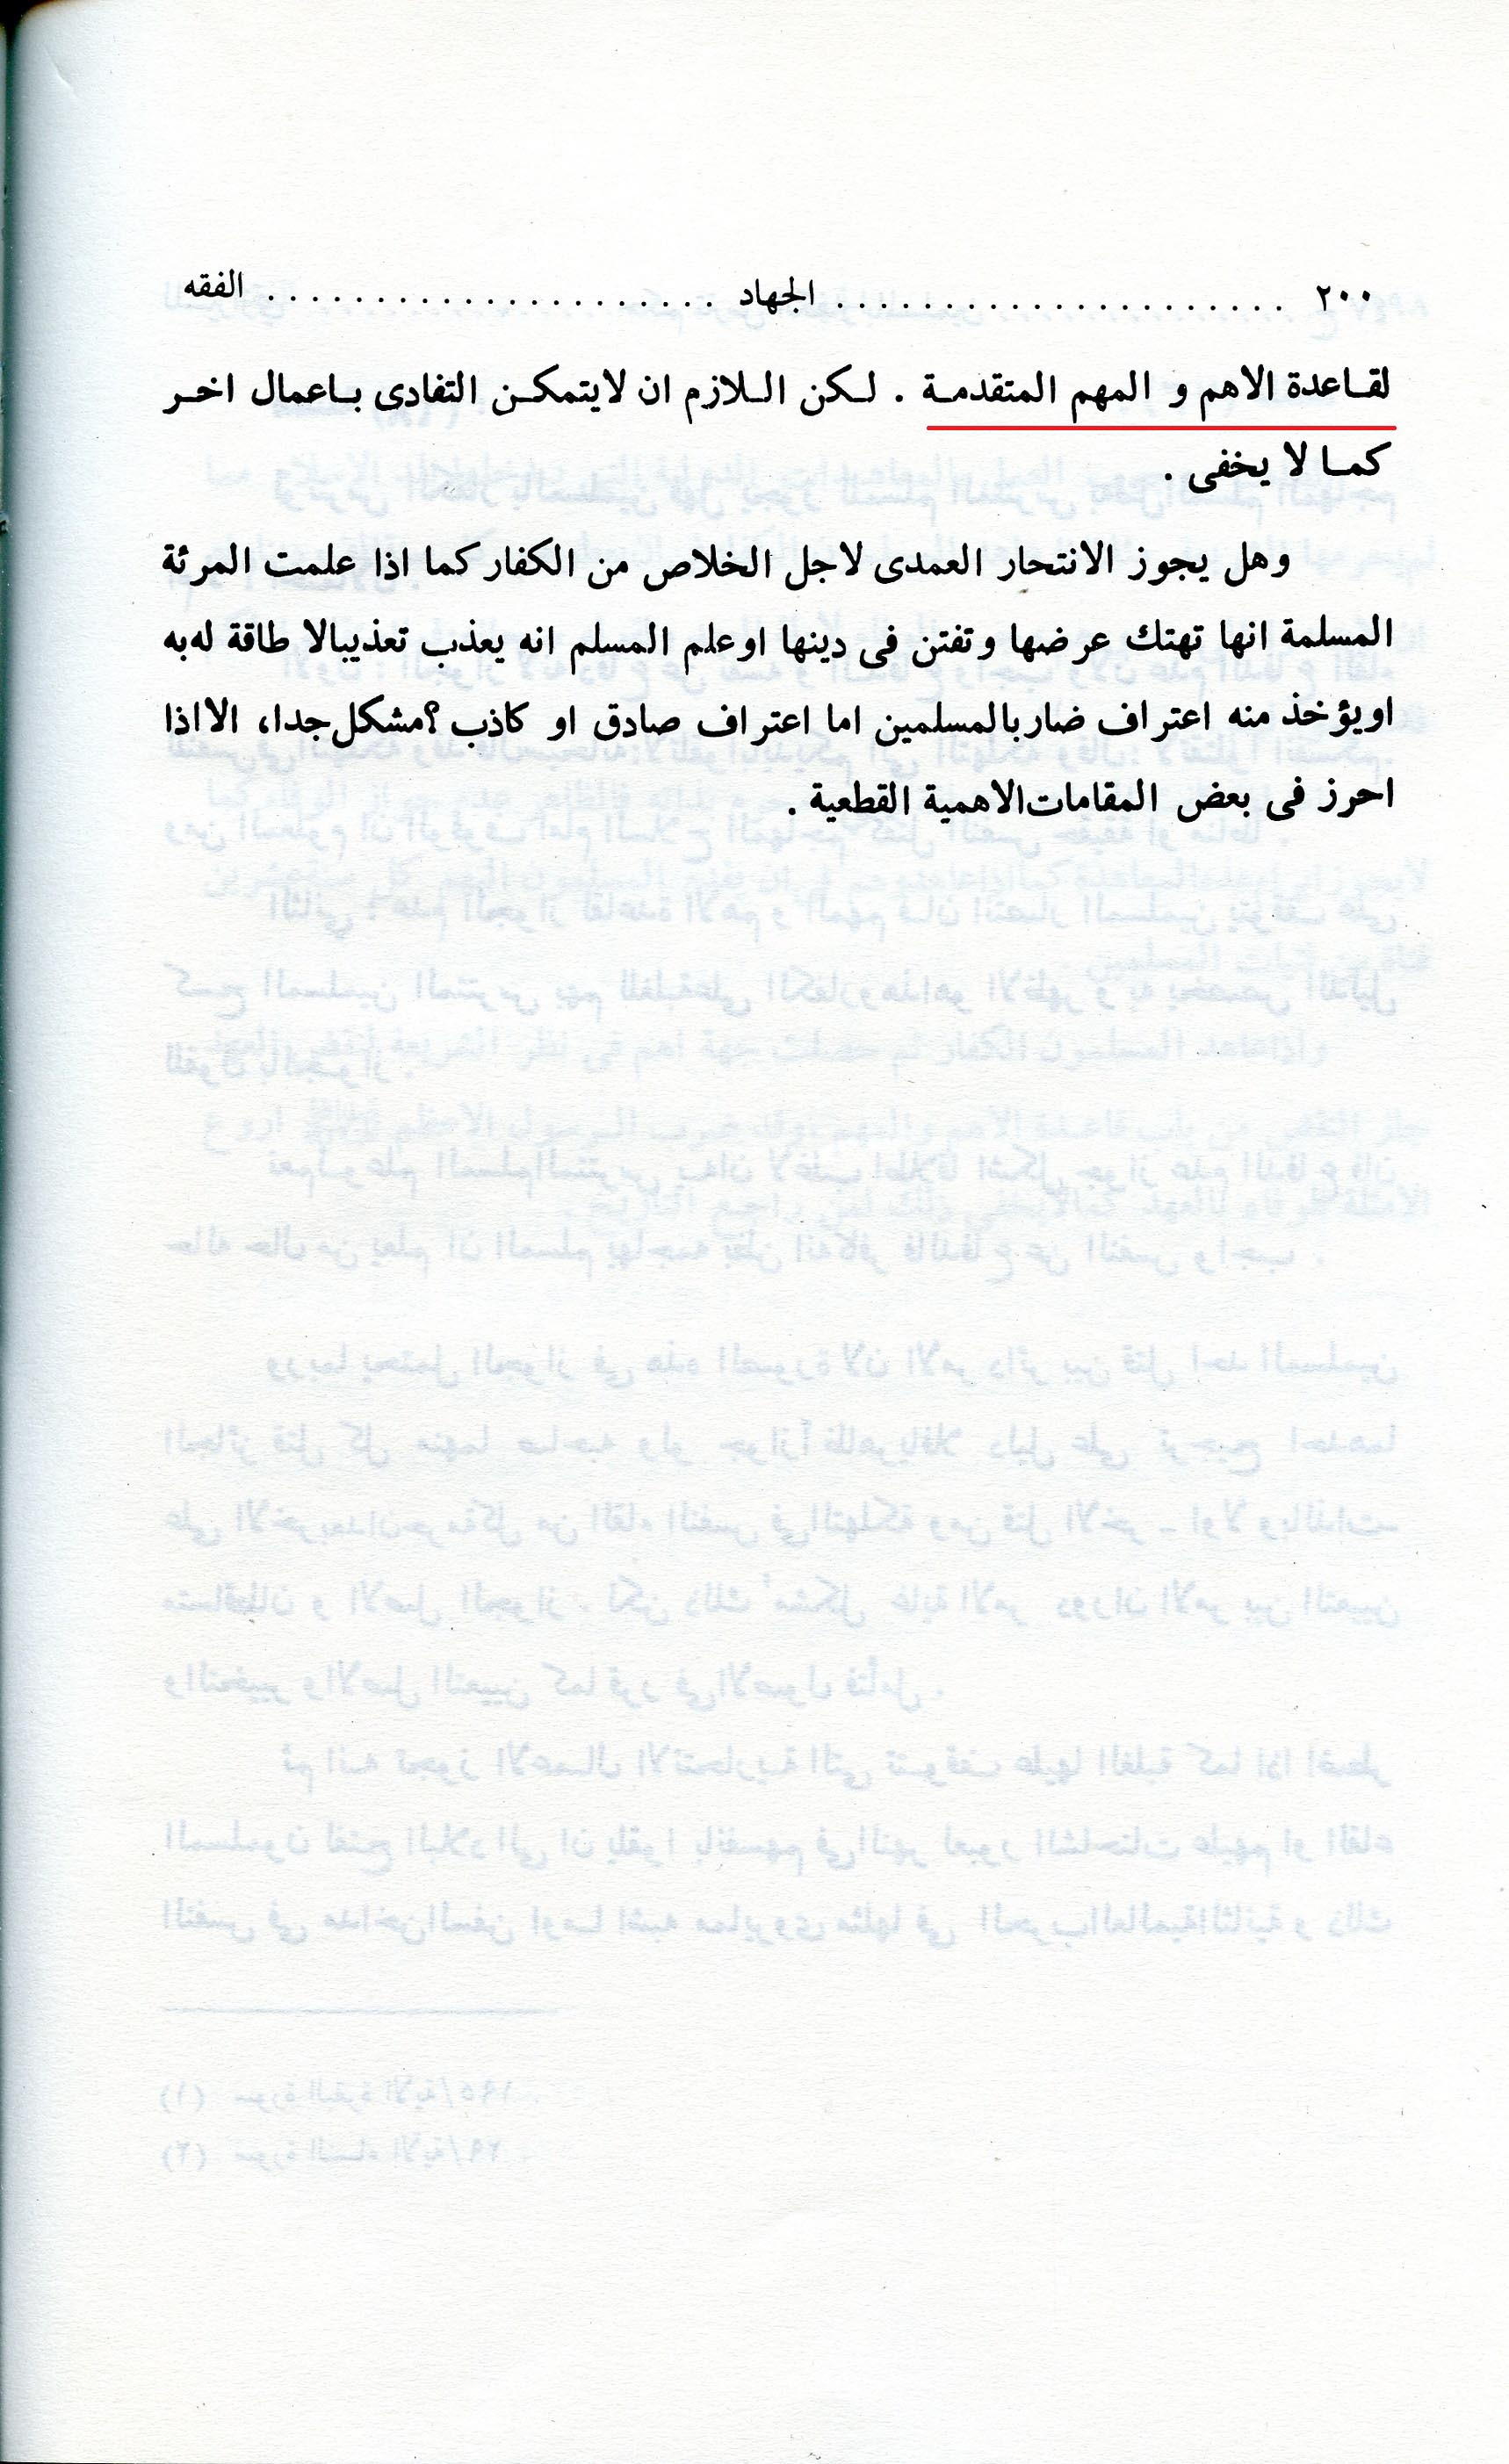 ٢٠٠ . . . . . . . . . . . . . . . . . . . . . . الجهاد . . . . . . . . . . . . . . . . . . . . . . الفقه
لقـاعدة الاهم و المهم المتقدمـة . لـكن الـلازم ان لايتمكـن التفادى بـاعمال اخـر
كمـا لا يخفى .
وهل يجوز الانتحار العمدى لاجل الخلاص من الكفار كما اذا علمت المرئة
المسلمة انها تهتك عرضها وتفتن فى دينها اوعلم المسلم انه يعذب تعذيبالا طاقة له به
اويؤخذ منه اعتراف ضاربالمسلمين اما اعتراف صادق او كاذب ؟ مشكل جدا، الااذا
احرز فى بعض المقامات الاهمية القطعية .